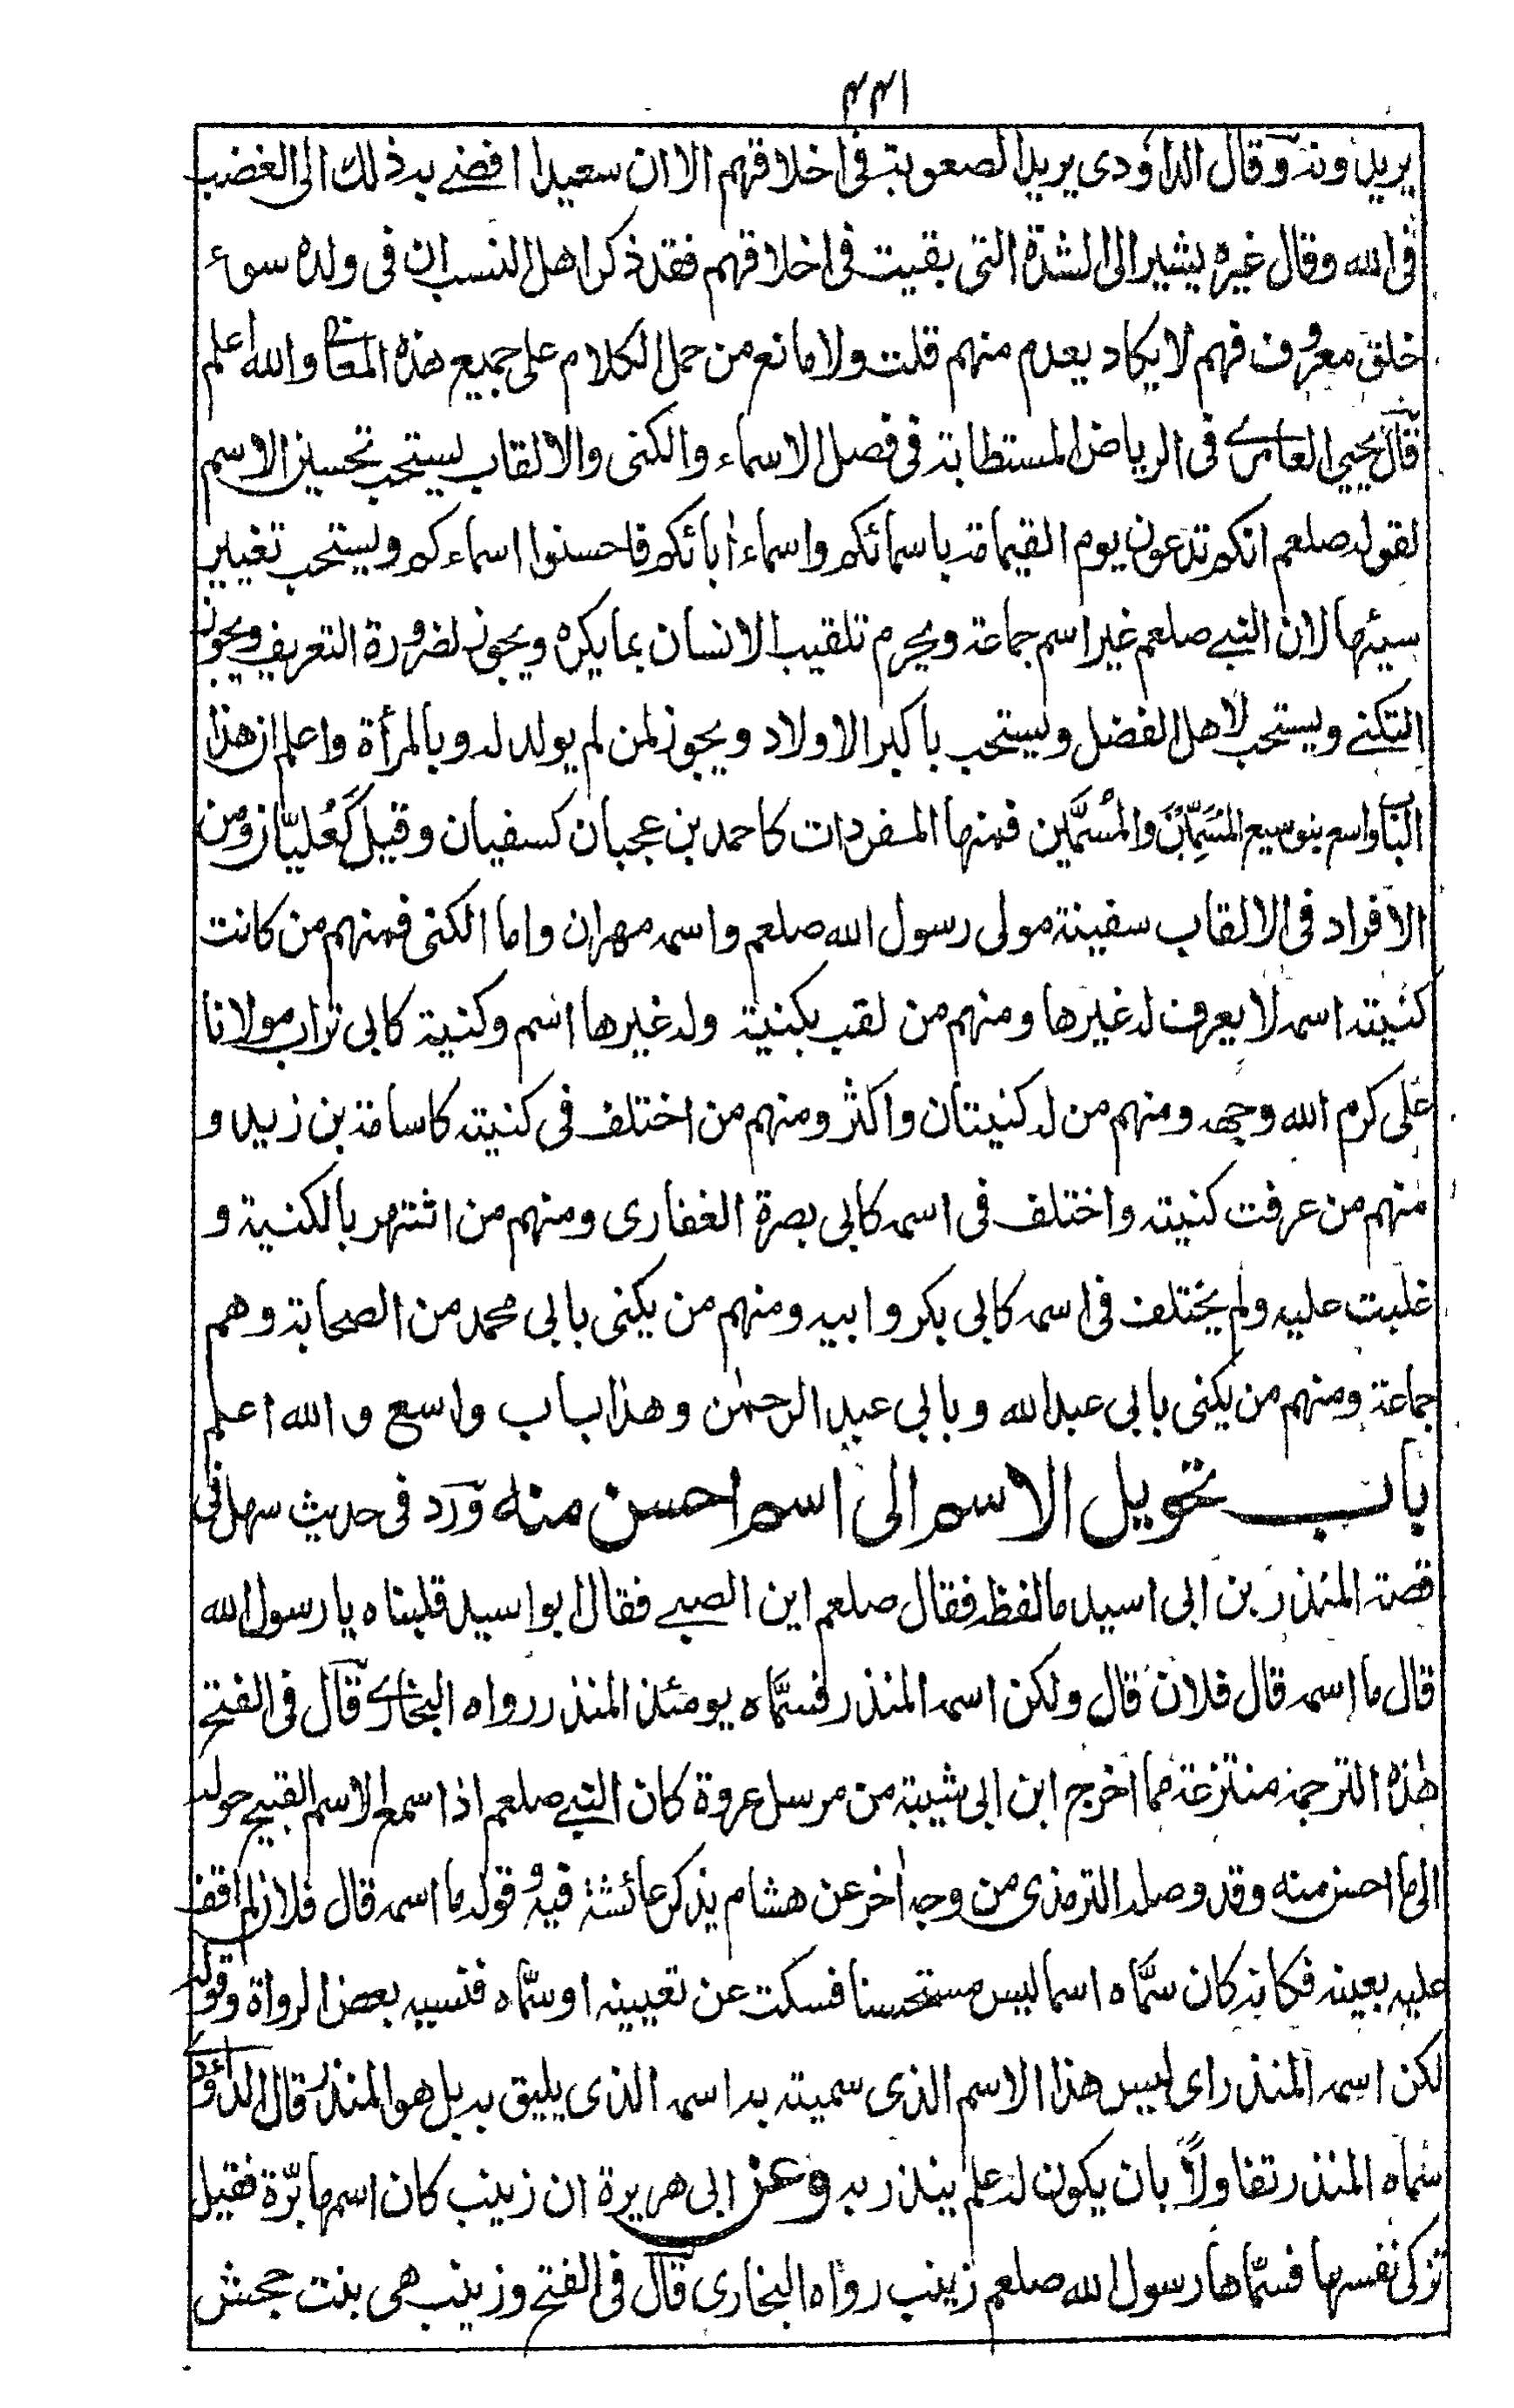 ٤٤١
يريدونه وقال الداؤدى يريد الصعوبة فى اخلاقهم الا ان سعيدا افضے به ذلك الى الغضب
فى الله وقال غيره يشير الى الشدة التى بقيت فى اخلاقهم فقد ذكر اهل النسب ان فى ولده سوء
خلق معروف فهم لا يكاد يعدم منهم قلت ولا مانع من حمل الكلام على جميع هذه المعانے والله اعلم
قال يحيى العامرے فى الرياض المستطابة فى فصل الاسماء والكنى والالقاب يستحب تحسين الاسم
لقوله صلعم انكم تدعون يوم القيامة باسمائكم واسماء اٰبائكم فاحسنوا اسماءكم ويستحب تغيير
سيئها لان النبے صلعم غير اسم جماعة ويحرم تلقيب الانسان بما يكره ويجوز لضرورة التعريف ويجوز
التكنے ويستحب لاهل الفضل ويستحب باكبر الاولاد ويجوز لمن لم يولد له وبالمرأة واعلم ان هذا
الباب واسع بتوسيع المُسَمِّيْنَ والمُسَمَّين فمنها المفردات كاحمد بن عجيان كسفيان وقيل كَعُليّان ومن
الافراد فى الالقاب سفينة مولى رسول الله صلعم واسمه مهران واما الكنى فمنهم من كانت
كنيته اسمه لا يعرف له غيرها ومنهم من لقب بكنية وله غيرها اسم وكنية كابى تراب مولانا
على كرم الله وجهه ومنهم من له كنيتان واكثر ومنهم من اختلف فى كنيته كاسامة بن زيد و
منهم من عرفت كنيته واختلف فى اسمه كابى بصرة الغفارى ومنهم من اشتهر بالكنية و
غلبت عليه ولم يختلف فى اسمه كابى بكر وابيه ومنهم من يكنى بابى محمد من الصحابة وهم
جماعة ومنهم من يكنى بابى عبدالله وبابى عبد الرحمٰن وهذا باب واسع والله اعلم
باب تحويل الاسم الى اسم احسن منه ورد فى حديث سهل فى
قصة المنذر بن ابى اسيد ما لفظه فقال صلعم اين الصبے فقال ابو اسيد قلبناه يا رسول الله
قال ما اسمه قال فلان قال ولكن اسمه المنذر فسمّاه يومئذ المنذر رواه البخارے قال فى الفتح
هذه الترجمة منتزعة مما اخرج ابن ابى شيبة من مرسل عروة كان النبے صلعم اذا سمع الاسم القبيح حوله
الى ما احسن منه وقد وصله الترمذى من وجه اٰخر عن هشام يذكر عائشة فيه وقوله ما اسمه قال فلان لم اقف
عليه بعينه فكانه كان سمّاه اسما ليس مستحسنا فسكت عن تعيينه او سمّاه فنسيه بعض الرواة وقوله
لكن اسمه المنذر اى ليس هذا الاسم الذى سميته به اسمه الذى يليق به بل هو المنذر قال الداؤدے
سماه المنذر تفاولاً بان يكون له علم ينذر به وعن ابى هريرة ان زينب كان اسمها برّة فقيل
تزكى نفسها فسمّاها رسول الله صلعم زينب رواه البخارى قال فى الفتح وزينب هى بنت جحش